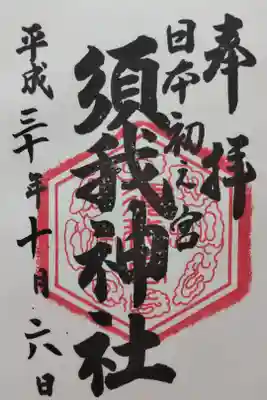 奉拝
日本初之宮
須我神社
平成三十年十月六日